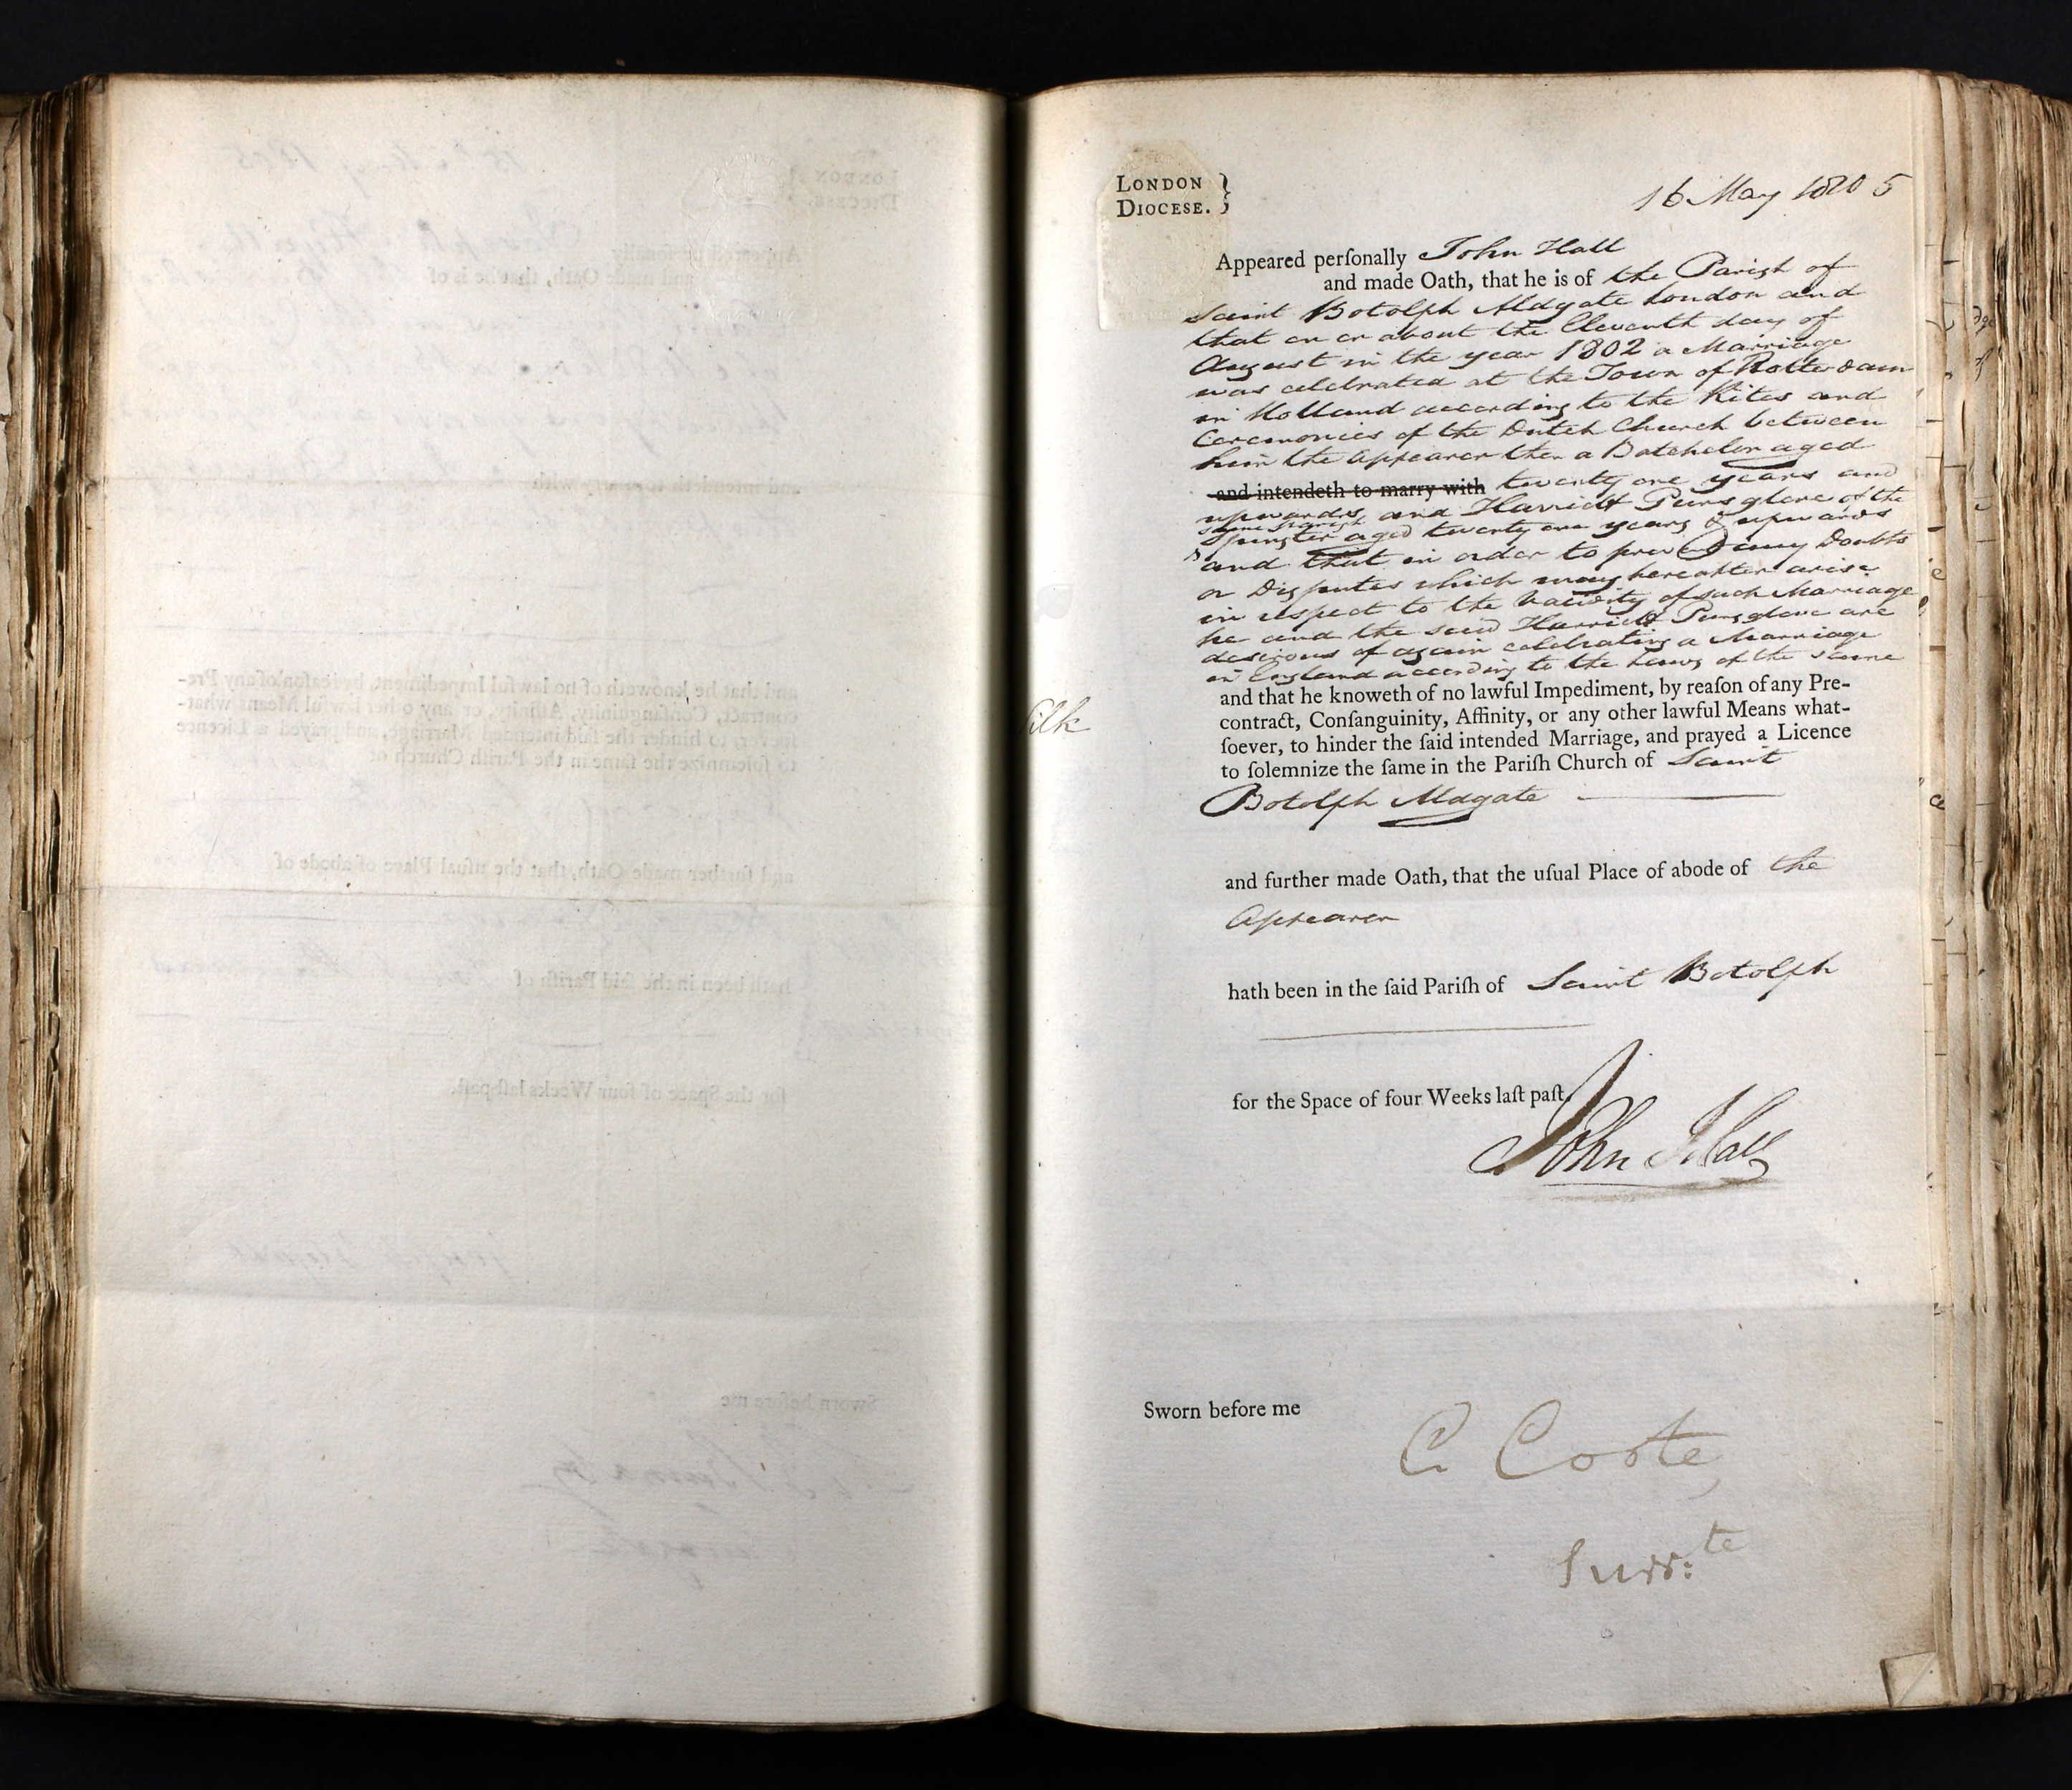 London
Diocese. }
16 May 1805
Appeared perſonally John Hall
and made Oath, that he is of the Parish of
Saint Botolph Aldgate London and
that on or about the Eleventh day of
August in the year 1802 a Marriage
was celebrated at the Town of Rotterdam
in Holland according to the Rites and
Ceremonies of the Dutch Church between
him the Appearer then a Batchelor aged
and intendeth to marry with twenty one years and
upwards and Harriott Pursglove of the
same Parish
Spinster aged twenty one years & upwards
and that in order to prevent any Doubts
or Disputes which may hereafter arise
in respect to the Validity of such Marriage
he and the said Harriott Pursglove are
desirous of again celebrating a Marriage
in England according to the Laws of the same
and that he knoweth of no lawful Impediment, by reaſon of any Pre-
contract, Conſanguinity, Affinity, or any other lawful Means what-
ſoever, to hinder the ſaid intended Marriage, and prayed a Licence
to ſolemnize the ſame in the Pariſh Church of Saint
Botolph Aldgate
and further made Oath, that the uſual Place of abode of the
Appearer
hath been in the ſaid Pariſh of Saint Botolph
for the Space of four Weeks laſt paſt.
John Hall
Sworn before me
C Coote
Surr:te